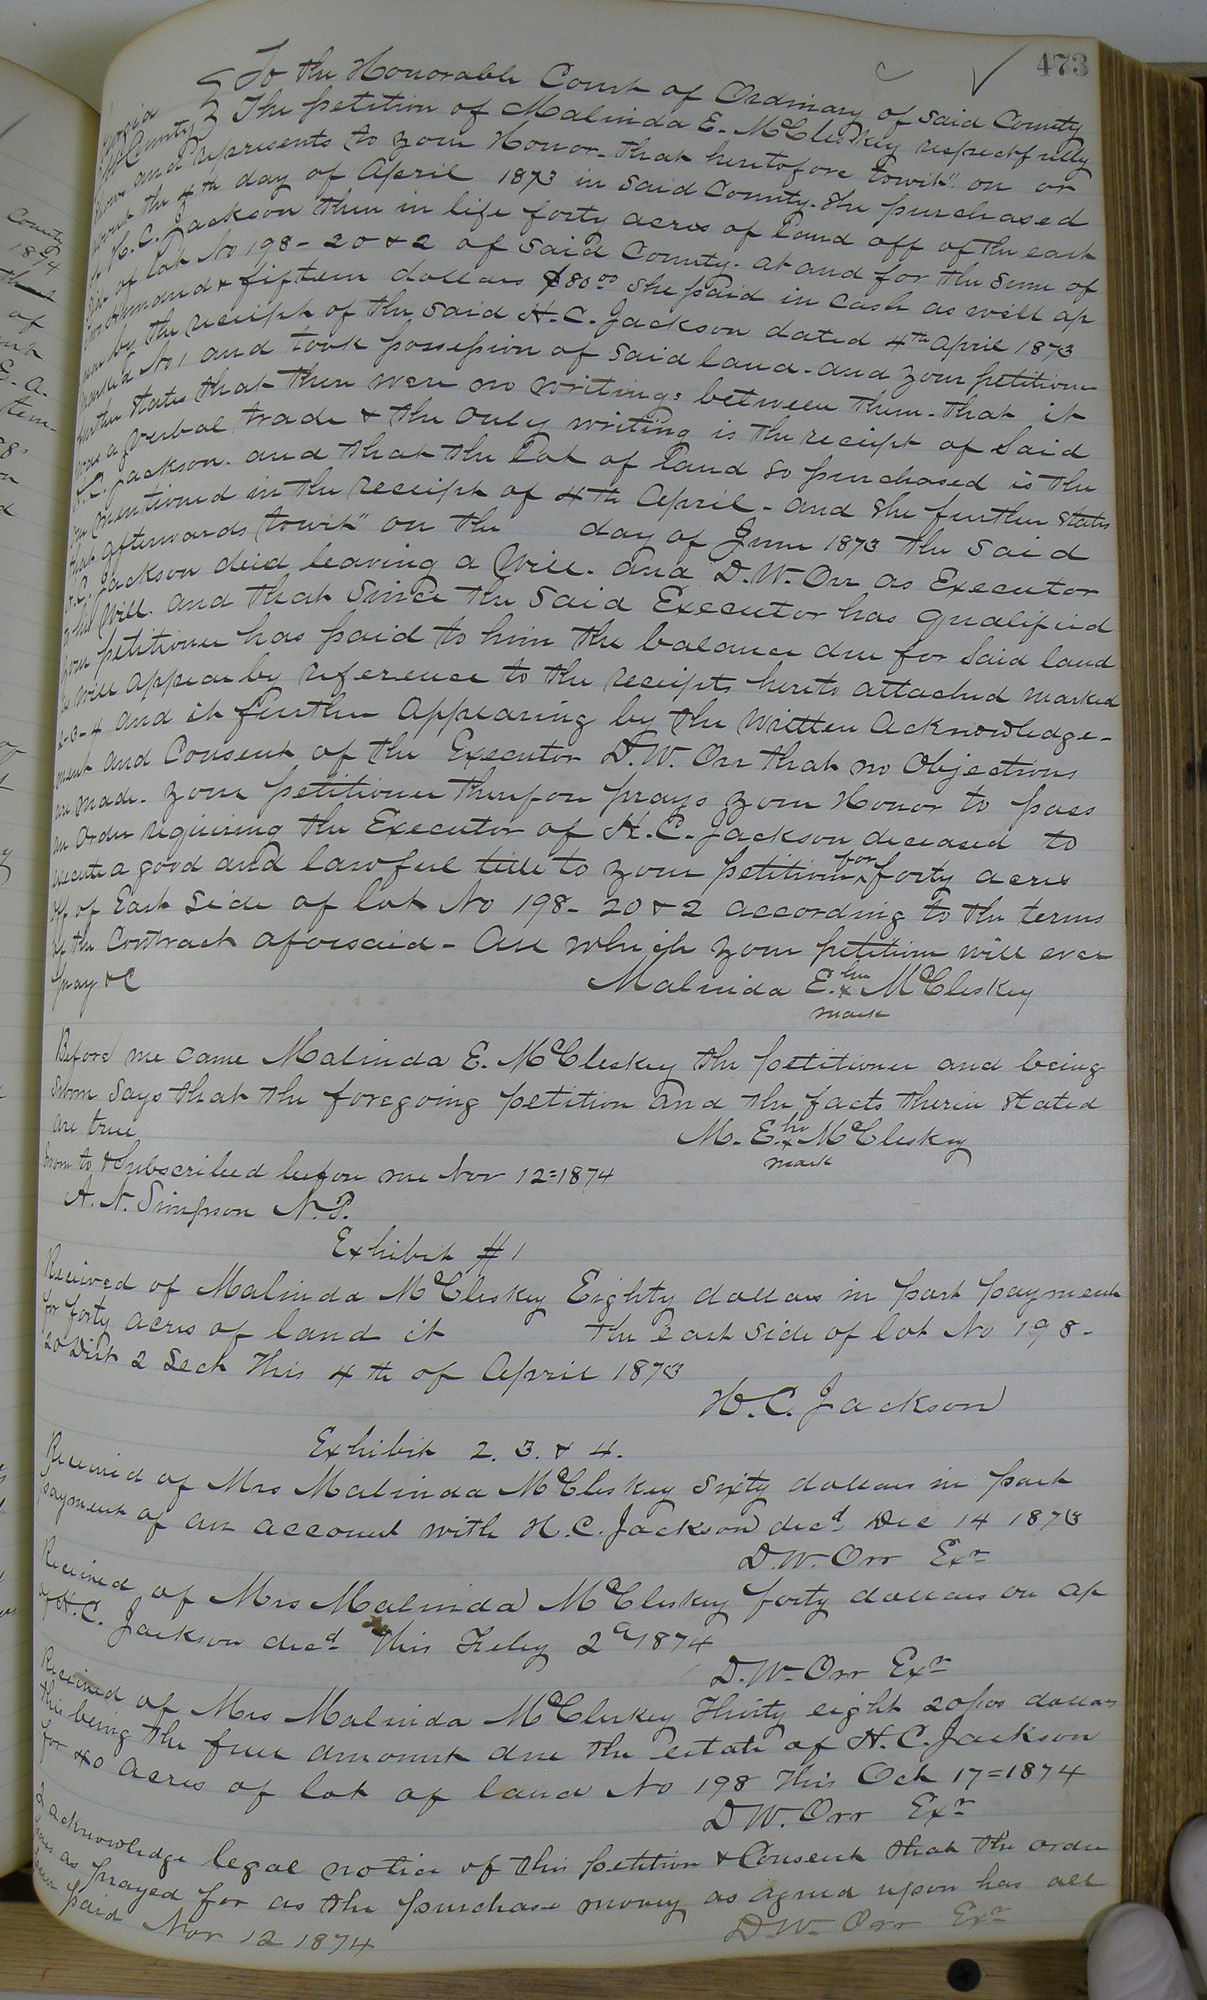 473
To the Honorable Court of Ordinary of said County
County The petition of Malinda E. McCleskey respectfully
shows and represents to your Honor - that heretofore towit" on or
about the 4th day of April 1873 in said County. She purchased
H. C. Jackson then in life forty acres of land off of the east
of lot No 198 - 20 & 2 of said County. at and for the sum of
one hundred & fifteen dollars $80 00 she paid in cash as will ap
pear by the receipt of the said H. C. Jackson dated 4th April 1873
marked No 1 and took possession of said land - and your petitioner
further states that there were no writings between them - that it
was a Verbal trade & the only writing is the receipt of said
H. C. Jackson. and that the Lot of land so purchased is the
one mentioned in the receipt of 4th April - and she further states
that afterwards towit" on the day of June 1873 the said
H. C. Jackson died leaving a Will. and D. W. Orr as Executor
to his Will. and that since the said Executor has qualified
your petitioner has paid to him the balance due for said land
as will appear by reference to the receipts hereto attached marked
2 - 3 - 4 and it further appearing by the written acknowledge-
ment and Consent of the Executor D. W. Orr that no Objections
are made. your petitioner therefore prays your Honor to pass
an Order requiring the Executor of H. C. Jackson deceased to
execute a good and lawful title to your petitioner for forty acres
off of East side of lot No 198 - 20 & 2 according to the terms
of the Contract aforesaid - All which your petitioner will ever
pray &C
Malinda E. her x McCleskey
mark
Before me came Malinda E. McCleskey the petitioner and being
sworn says that the foregoing petition and the facts therein stated
are true
M. E. her x McCleskey
mark
Sworn to & Subscribed before me Nov 12 = 1874
A. N. Simpson N. P.
Exhibit # 1
Received of Malinda McCleskey Eighty dollars in part payment
for forty acres of land it the east side of lot No 198 -
20 Dist 2 Sect This 4th of April 1873
H. C. Jackson
Exhibit 2. 3. & 4.
Received of Mrs Malinda McCleskey sixty dollars in part
payment of an account with H. C. Jackson decd Dec 14 1873
D. W. Orr Exr
Received of Mrs Malinda McCleskey forty dollars on ap
of H. C. Jackson decd This Feby 2d 1874
D. W. Orr Exr
Received of Mrs Malinda McCleskey Thirty eight 20/100 dollars
this being the full amount due the estate of H. C. Jackson
for 40 acres of lot of land No 198 This Oct 17 = 1874
D W. Orr Exr
I acknowledge legal notice of this petition & Consent that the order
pass as prayed for as the purchase money as agreed upon has all
been paid Nov 12 1874
D. W. Orr Exr